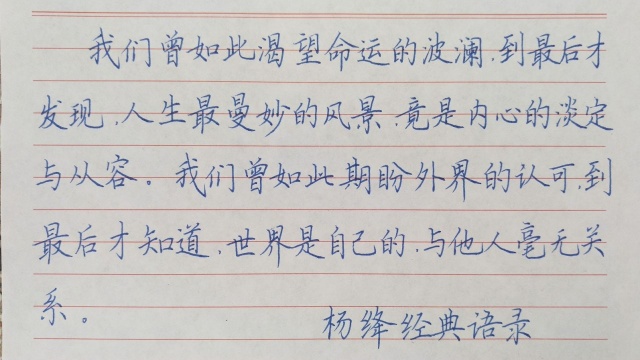 我们曾如此渴望命运的波澜,到最后才
发现,人生最曼妙的风景,竟是内心的淡定
与从容。我们曾如此期盼外界的认可,到
最后才知道,世界是自己的,与他人毫无关
系。
杨绛经典语录